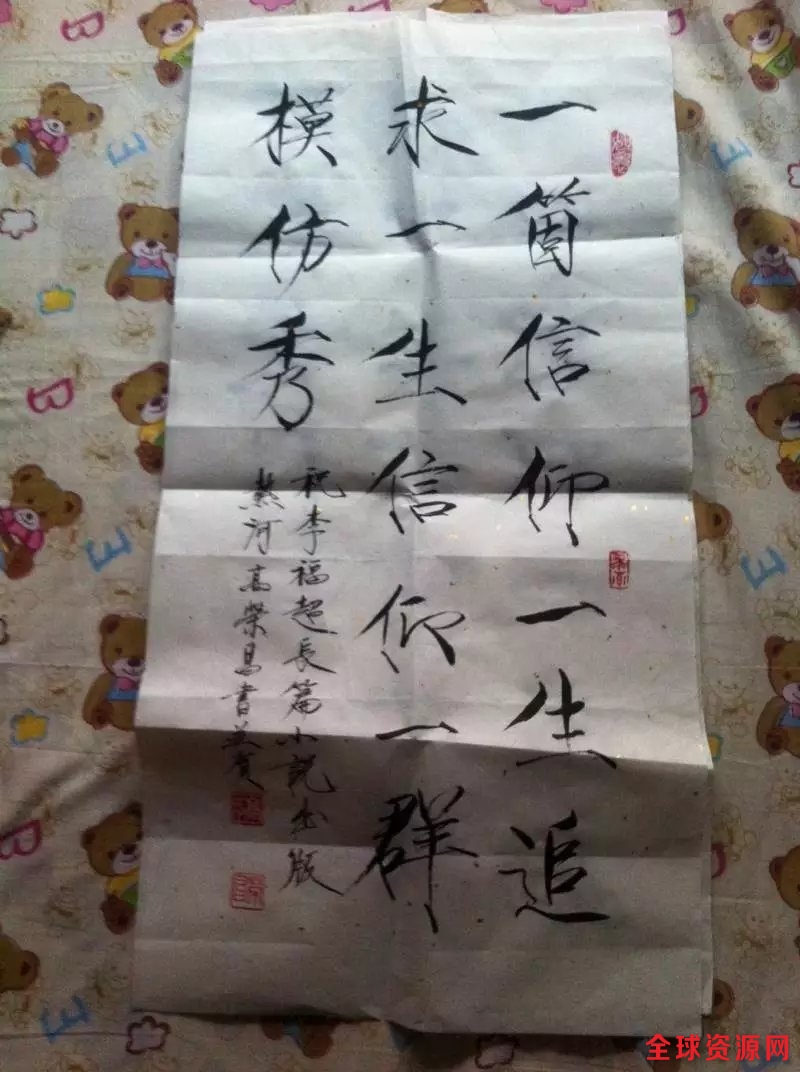 一箇信仰一生追
求一生信仰一群
模仿秀
祝李福超长篇小説出版
热河高榮昌書並贺
全球资源网